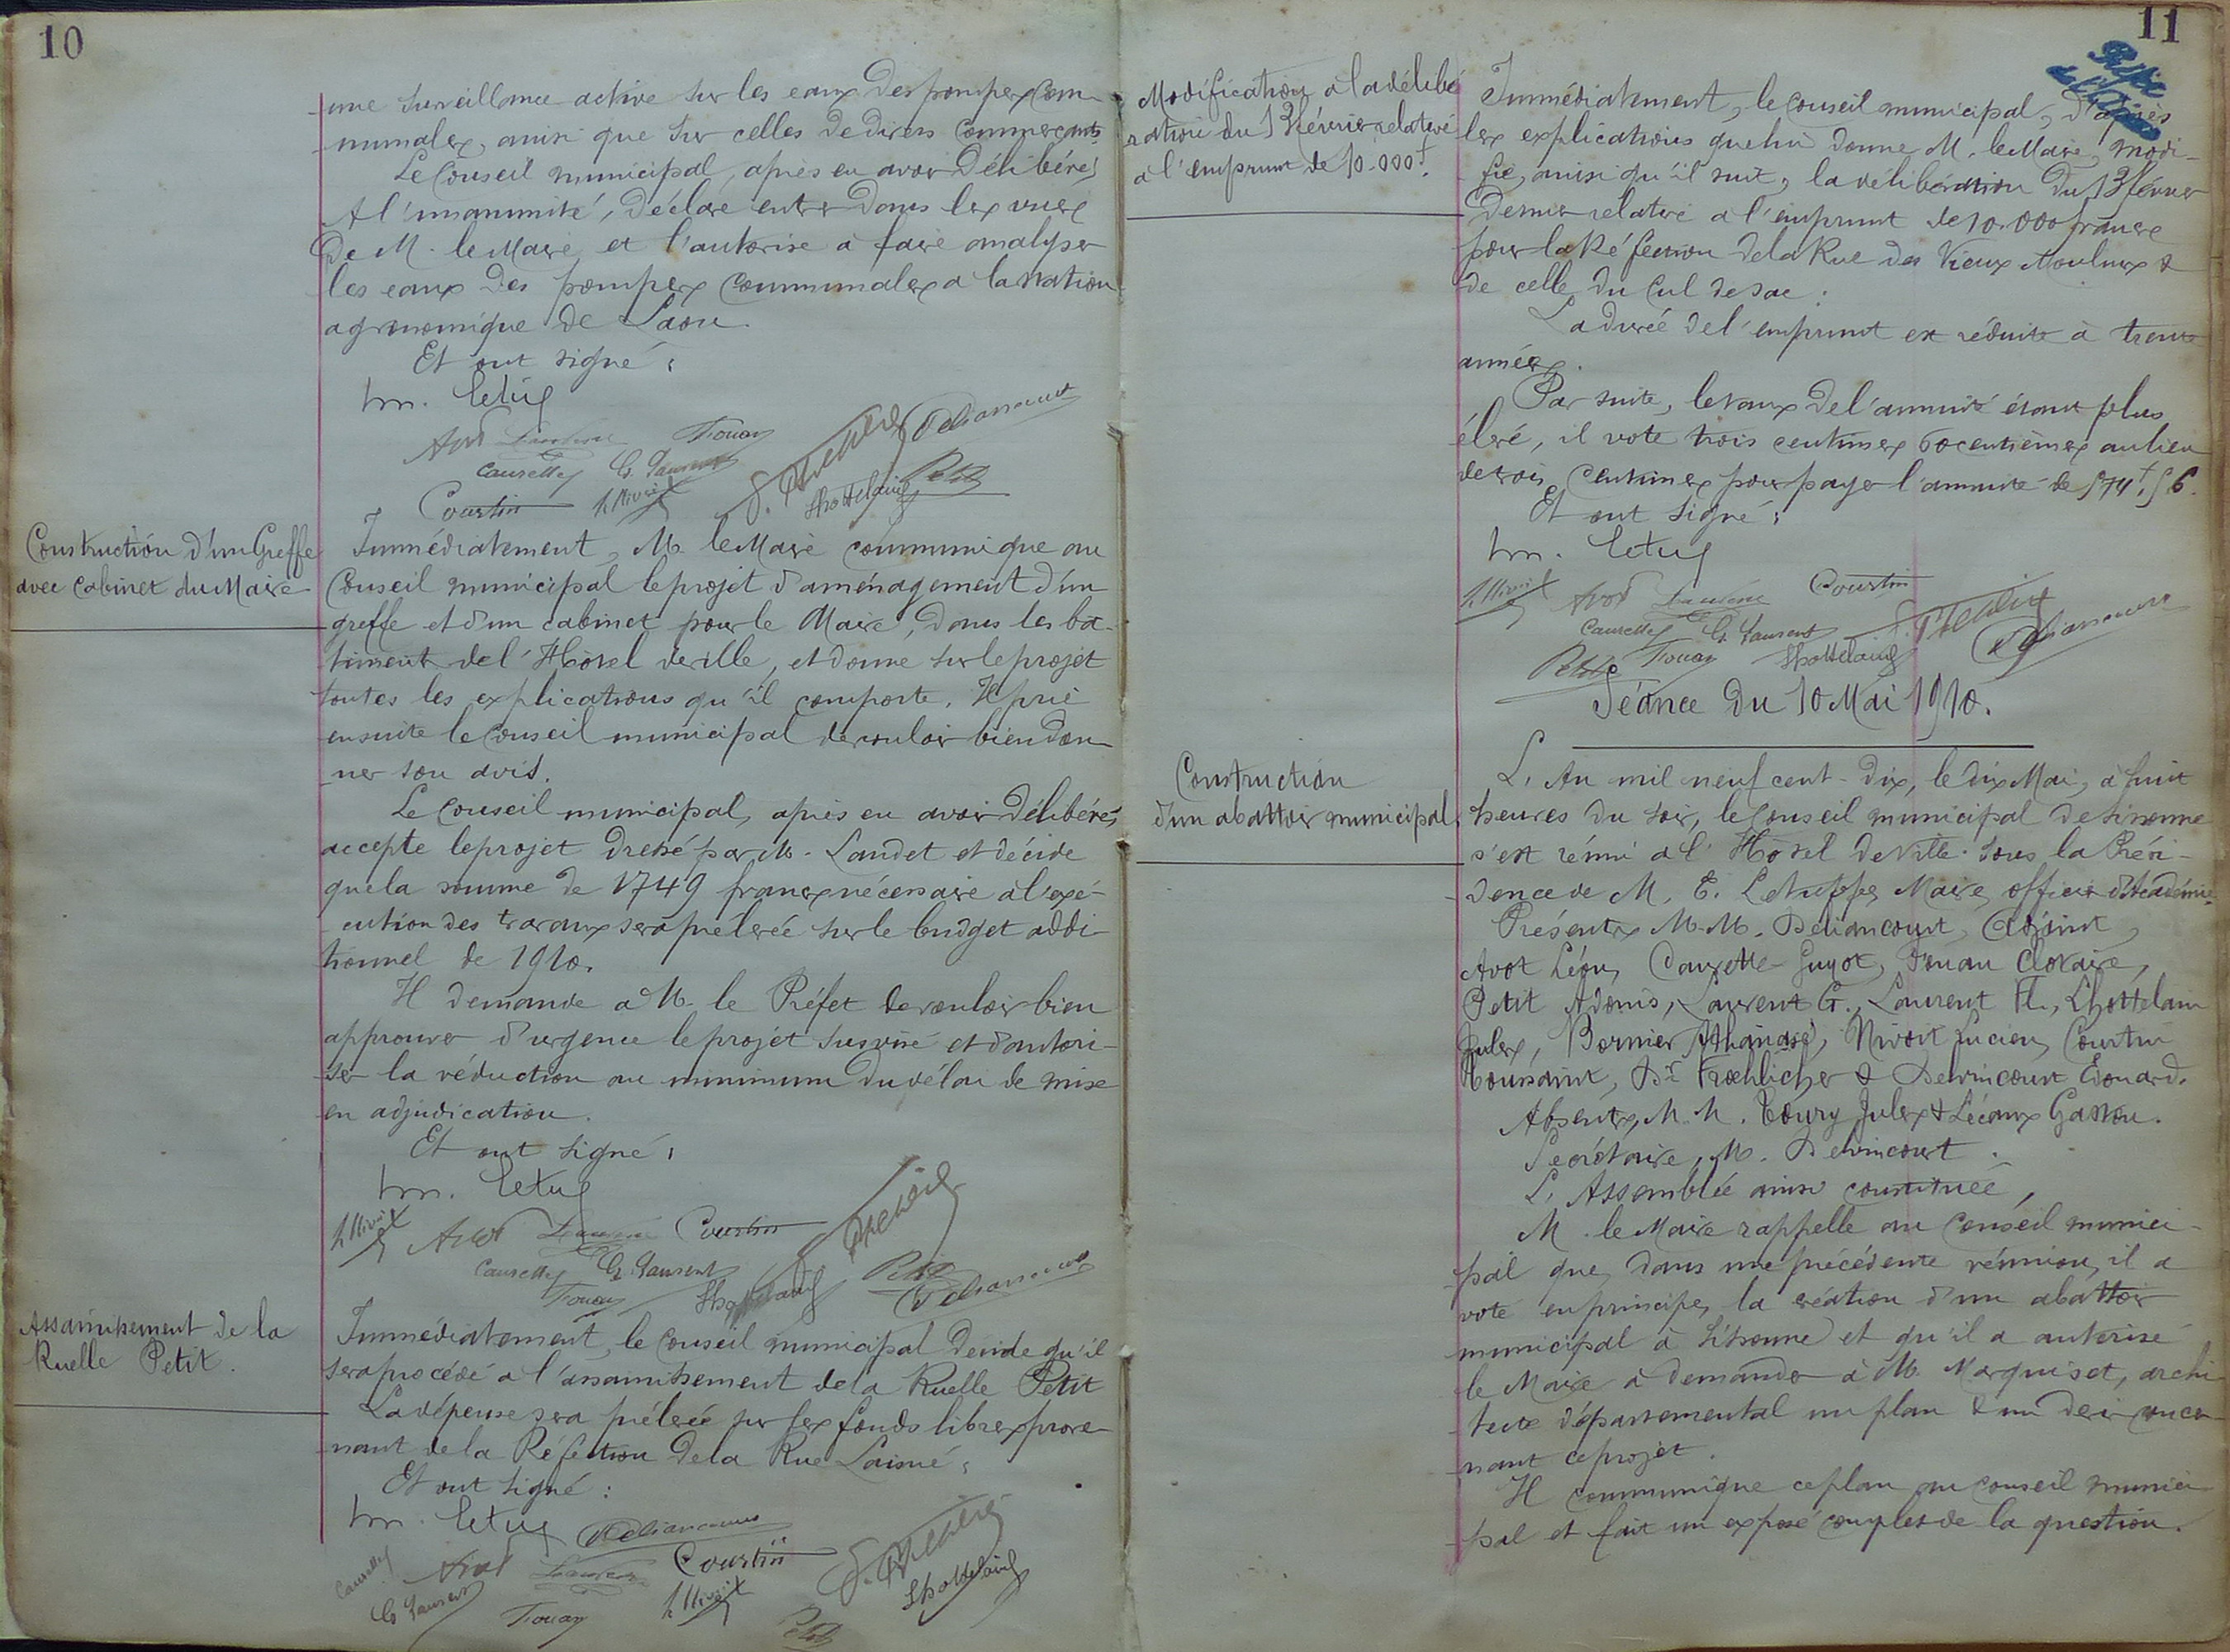 10
une surveillance active sur les eaux des pompes com-
munales, ainsi que sur celles de divers commerçants.
Le Conseil municipal, après en avoir délibéré,
A l'unanimité, déclare entrer dans les vues
de M. le Maire et l'autorise à faire analyser
les eaux des pompes communales à la station
agronomique de Laon.
Et ont signé :
Avot Laurent Fouan
Caurette G. Laurent
Courtin L. Nivoit Lhottelain Petit Deliancourt
Construction d'un Greffe
avec cabinet du Maire
Immédiatement, M. le Maire communique au
Conseil municipal le projet d'aménagement d'un
greffe et d'un cabinet pour le Maire, dans les bâ-
timents de l'Hôtel de ville, et donne sur le projet
toutes les explications qu'il comporte. Il prie
ensuite le Conseil municipal de vouloir bien don-
ner son avis.
Le Conseil municipal, après en avoir délibéré,
accepte le projet dressé par M. Landet et décide
que la somme de 1749 francs nécessaire à l'exé-
cution des travaux sera prélevée sur le budget addi-
tionnel de 1910.
Il demande à M. le Préfet de vouloir bien
approuver d'urgence le projet susvisé et d'autori-
ser la réduction au minimum du délai de mise
en adjudication.
Et ont signé :
L. Nivoit Avot Laurent Courtin
Caurette G. Laurent Petit
Fouan Lhottelain Deliancourt
Assainissement de la
Ruelle Petit.
Immédiatement, le Conseil municipal décide qu'il
sera procédé à l'assainissement de la Ruelle Petit
La dépense sera prélevée sur les fonds libres prove-
nant de la Réfection de la Rue Laisné ;
Et ont signé :
Deliancourt
Caurette Avot Laurent Courtin
G. Laurent Fouan L. Nivoit Petit Lhottelain
11
Modification à la délibé
ration du 13 février relative
à l'emprunt de 10.000f.
Immédiatement, le Conseil municipal, d'après
les explications que lui donne M. le Maire, modi-
fie, ainsi qu'il suit, la délibération du 13 février
dernier relative à l'emprunt de 10.000 francs
pour la Réfection de la Rue des Vieux Moulins &
de celle du Cul de sac :
La durée de l'emprunt est réduite à trente
années.
Par suite, le taux de l'annuité étant plus
élevé, il vote trois centimes 60 centièmes au lieu
de trois centimes pour payer l'annuité de 574f,56.
Et ont signé :
L. Nivoit Avot Laurent Courtin
Caurette G. Laurent
Petit Fouan Lhottelain Deliancourt
Séance du 10 Mai 1910.
Construction
d'un abattoir municipal
L'An mil neuf cent-dix, le dix Mai, à huit
heures du soir, le Conseil municipal de Sissonne
s'est réuni à l'Hôtel de Ville sous la Prési-
dence de M. E. Letuppe, Maire, officier d'Académie.
Présents M.M. Deliancourt, Adjoint,
Avot Léon, Caurette-Guyot, Fouan Clotaire,
Petit Adonis, Laurent G., Laurent Fl., Lhottelain
Jules, Bornier Athanase, Nivoit Lucien, Courtin
Toussaint, Dr Froehlicher & Delvincourt Edouard.
Absents, M.M. Toury Jules & Lécaux Gaston.
Secrétaire, M. Delvincourt.
L'Assemblée ainsi constituée,
M. le Maire rappelle au Conseil munici-
pal que, dans une précédente réunion, il a
voté en principe, la création d'un abattoir
municipal à Sissonne et qu'il a autorisé
le Maire à demander à M. Marquiset, archi-
tecte départemental un plan & un devis concer-
nant ce projet.
Il communique ce plan au Conseil munici-
pal et fait un exposé complet de la question.